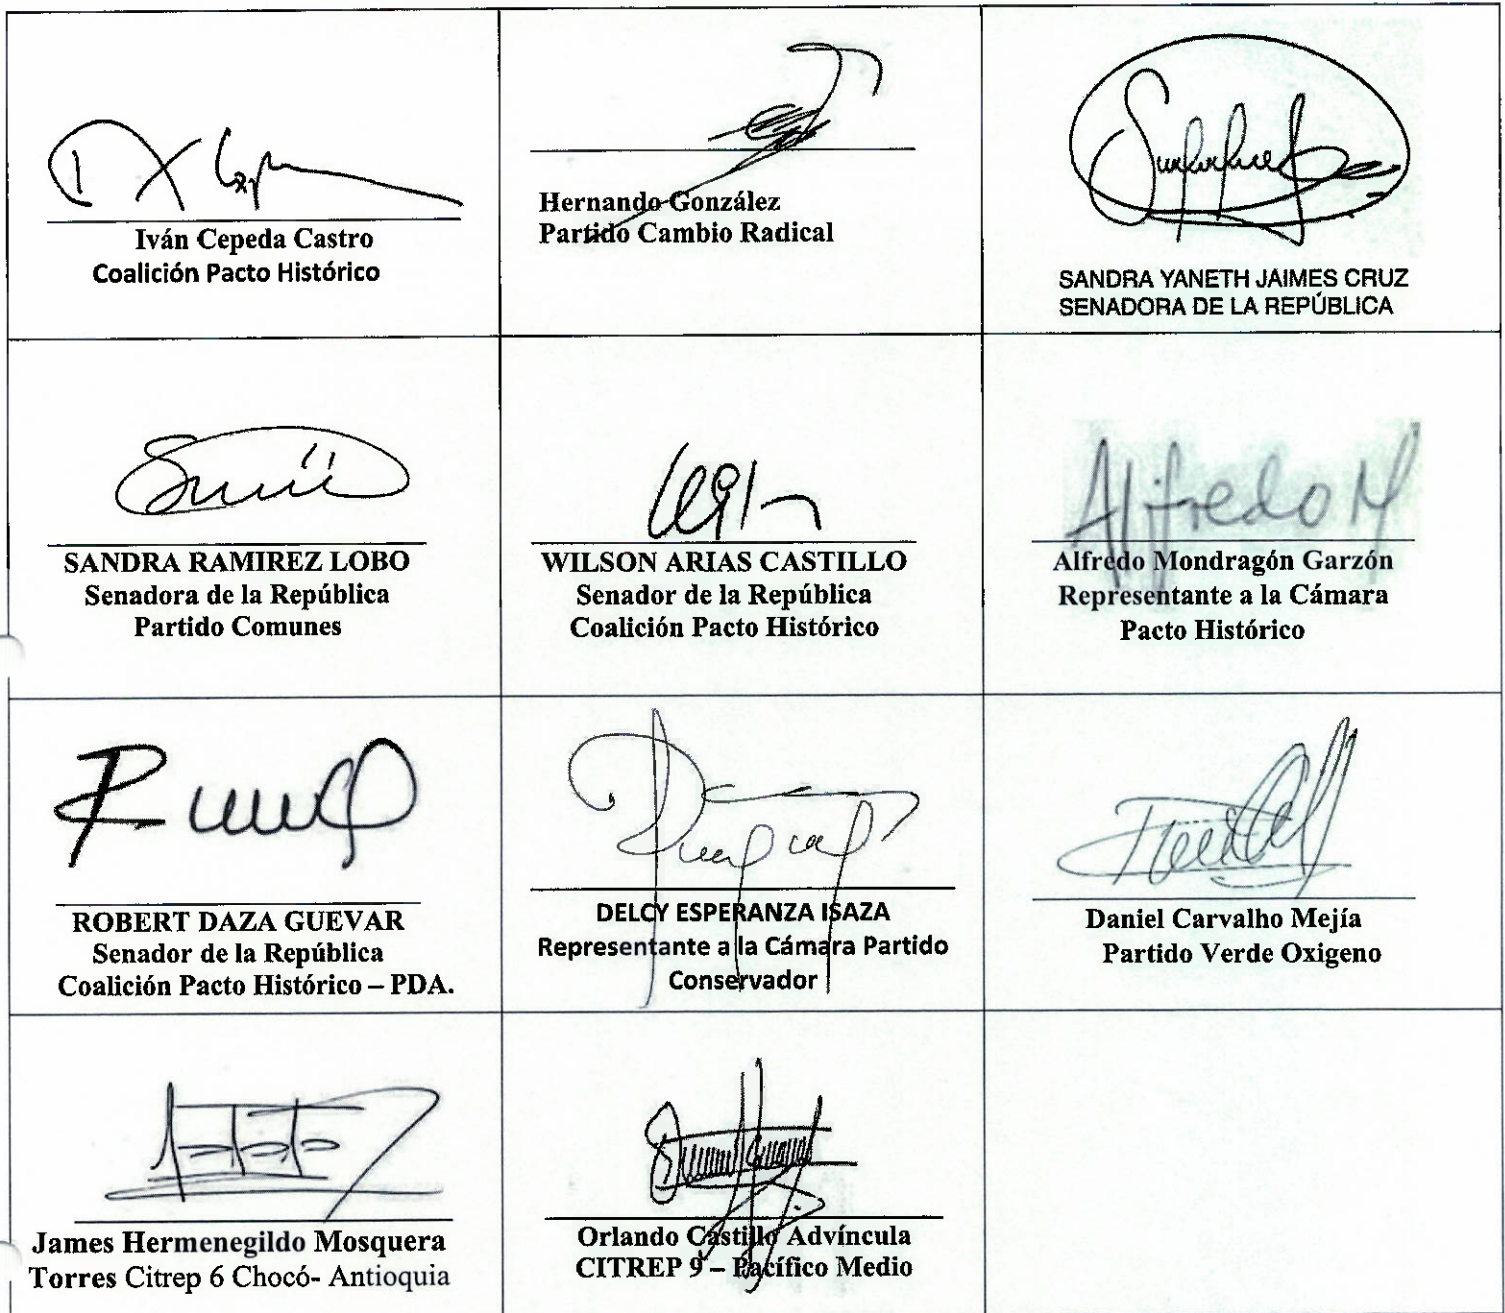 Iván Cepeda Castro
Coalición Pacto Histórico
Hernando González
Partido Cambio Radical
SANDRA YANETH JAIMES CRUZ
SENADORA DE LA REPÚBLICA
SANDRA RAMIREZ LOBO
Senadora de la República
Partido Comunes
WILSON ARIAS CASTILLO
Senador de la República
Coalición Pacto Histórico
Alfredo M
Alfredo Mondragón Garzón
Representante a la Cámara
Pacto Histórico
ROBERT DAZA GUEVAR
Senador de la República
Coalición Pacto Histórico – PDA.
DELCY ESPERANZA ISAZA
Representante a la Cámara Partido
Conservador
Daniel Carvalho Mejía
Partido Verde Oxigeno
James Hermenegildo Mosquera
Torres Citrep 6 Chocó- Antioquia
Orlando Castillo Advíncula
CITREP 9 – Pacífico Medio